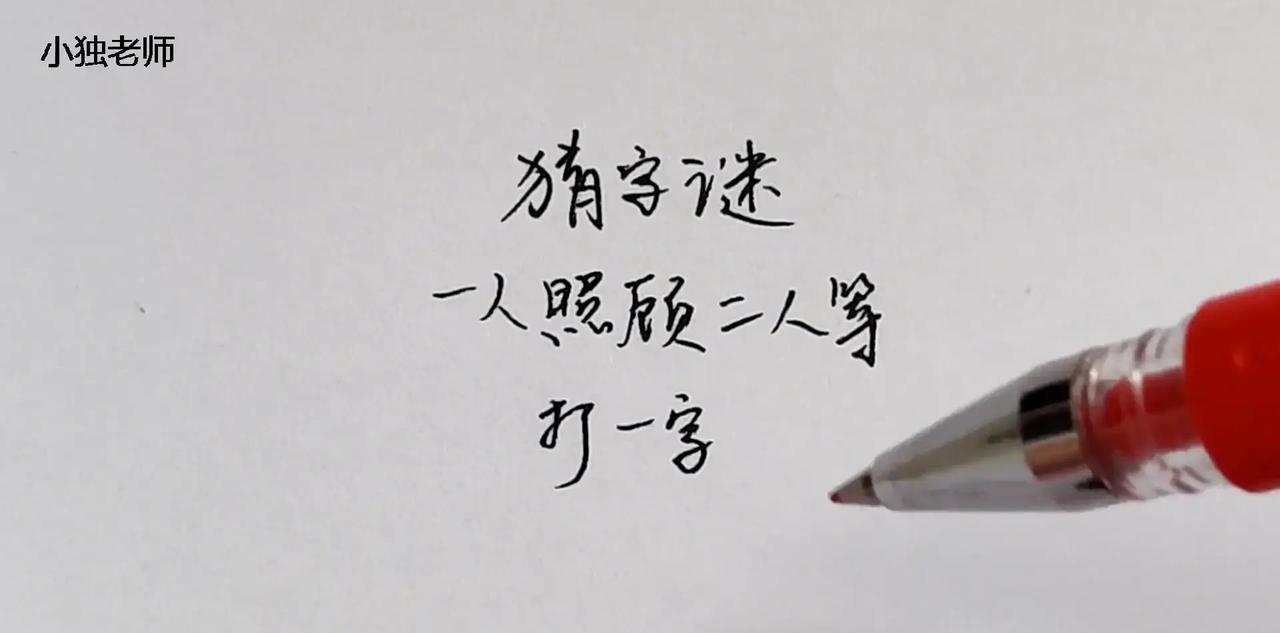 小独老师
猜字谜
一人照顾二人等
打一字